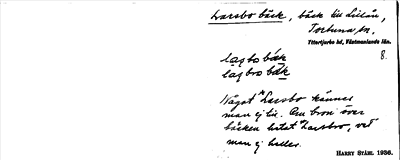 Larsbo bäck, bäck till Lillån,
Tortuna sn.
Yttertjurbo hd, Västmanlands län.
8.
lagbo bäk
lagbro bäk
Något "Larsbo känner
man ej till. Om bron över
bäcken hetat "Larsbro, vet
man ej heller.
HARRY STÅHL 1936.